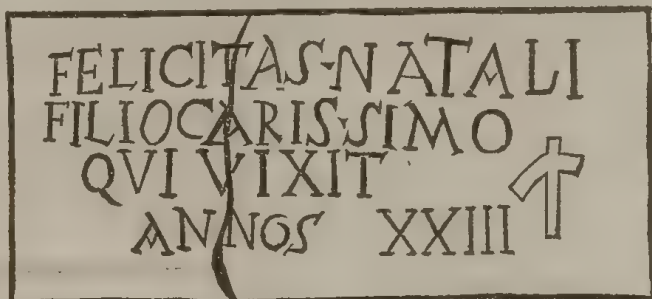 FELICITAS·NATALI
FILIOCARIS·SIMO
QVI VIXIT
ANNOS XXIII